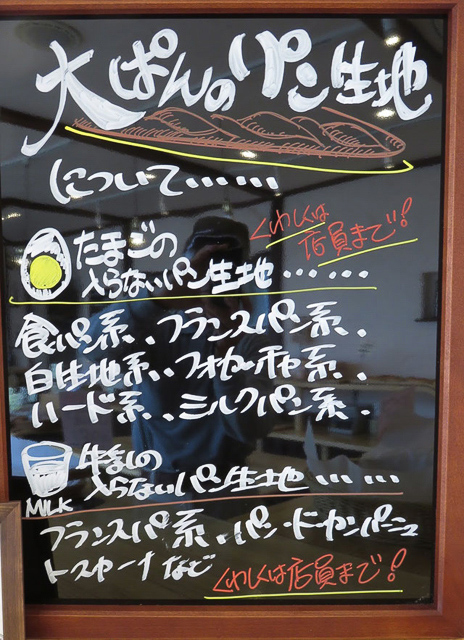 大ぱんのパン生地
について……
くわしくは
店員まで！
たまごの
入らないパン生地……
食パン系、フランスパン系、
白生地系、フォカッチャ系、
ハード系、ミルクパン系、
牛乳の
入らないパン生地……
MILK
フランスパン系、パン・ド・カンパーニュ
トスカーナなど
くわしくは店員まで！